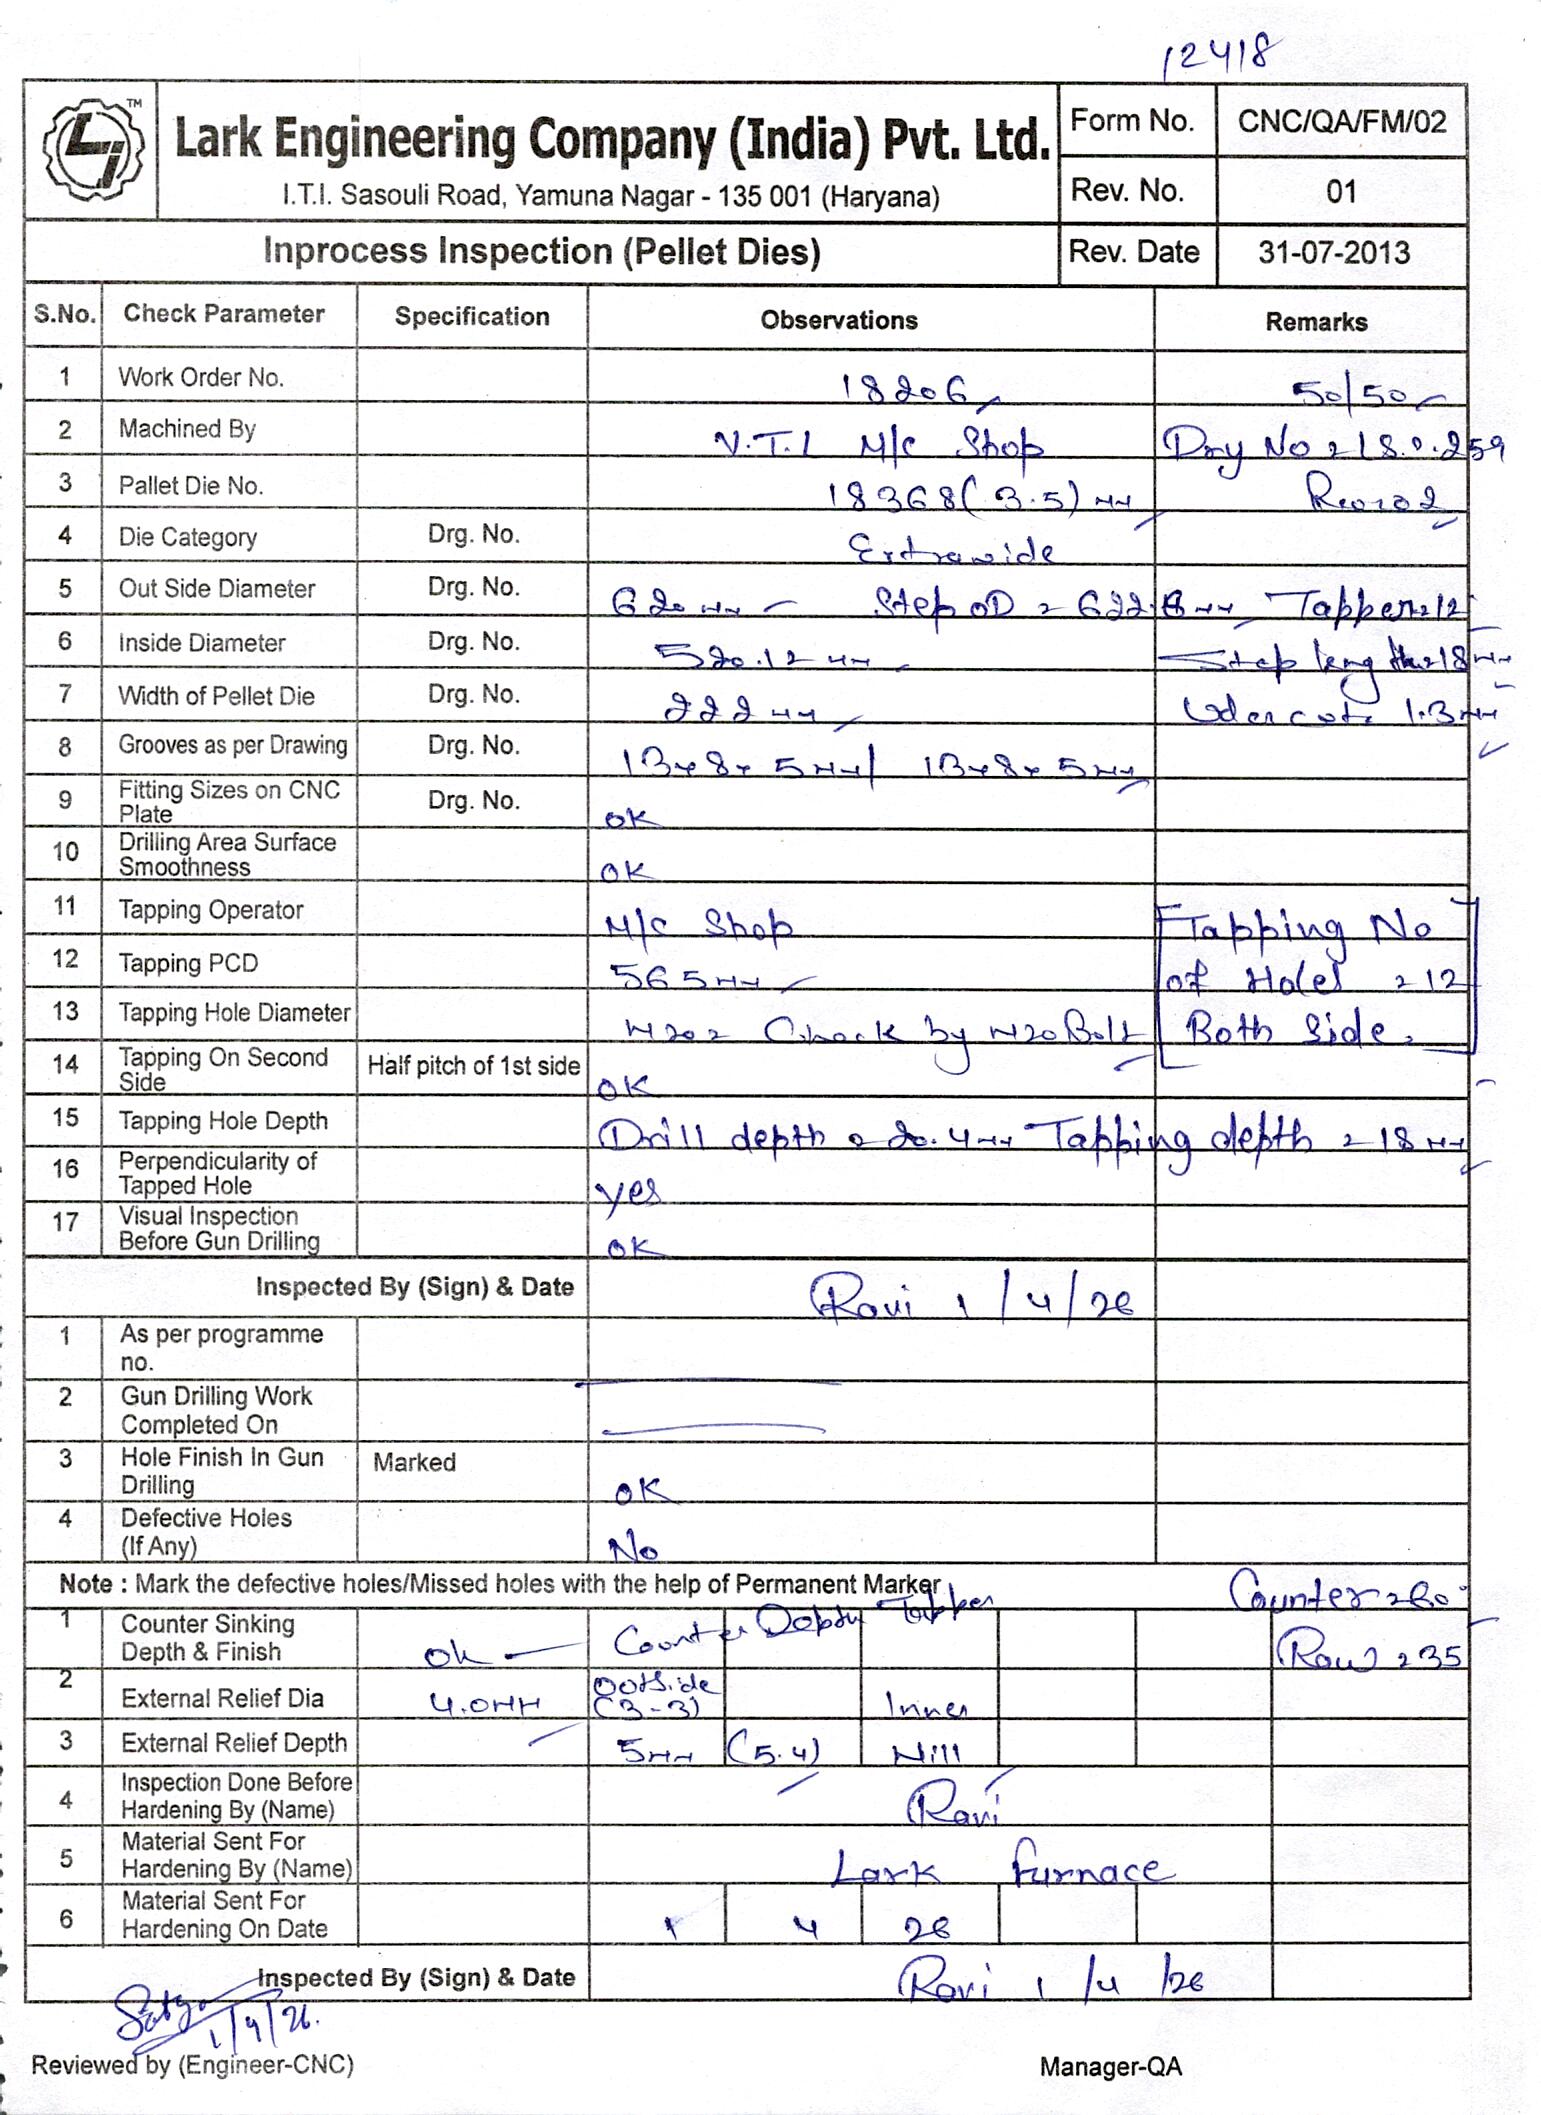 12418
LJ TM
Lark Engineering Company (India) Pvt. Ltd.
I.T.I. Sasouli Road, Yamuna Nagar - 135 001 (Haryana)
Form No. CNC/QA/FM/02
Rev. No. 01
Inprocess Inspection (Pellet Dies) Rev. Date 31-07-2013
S.No. Check Parameter Specification Observations Remarks
1 Work Order No. 18206 50/50
2 Machined By V.T.L M/c Shop Drg No = L8.0.259
3 Pallet Die No. 18368 (3.5) mm Rev=02
4 Die Category Drg. No. Extrawide
5 Out Side Diameter Drg. No. 620 mm Step OD = 622.8 mm Tapper=12
6 Inside Diameter Drg. No. 520.12 mm Step length=18mm
7 Width of Pellet Die Drg. No. 222 mm Udercut= 1.3mm
8 Grooves as per Drawing Drg. No. 13x8x5mm/ 13x8x5mm
9 Fitting Sizes on CNC Plate Drg. No. OK
10 Drilling Area Surface Smoothness OK
11 Tapping Operator M/c Shop Tapping No
12 Tapping PCD 565mm of Holes = 12
13 Tapping Hole Diameter M20= Check by M20 Bolt Both Side.
14 Tapping On Second Side Half pitch of 1st side OK
15 Tapping Hole Depth Drill depth = 20.4mm Tapping depth = 18mm
16 Perpendicularity of Tapped Hole yes
17 Visual Inspection Before Gun Drilling OK
Inspected By (Sign) & Date Ravi 1/4/26
1 As per programme no.
2 Gun Drilling Work Completed On
3 Hole Finish In Gun Drilling Marked OK
4 Defective Holes (If Any) No
Note : Mark the defective holes/Missed holes with the help of Permanent Marker Counter=60°
1 Counter Sinking Depth & Finish Ok Counter Tapper Row = 35
2 External Relief Dia 4.0mm Outside (3-3) Inner
3 External Relief Depth 5mm (5.4) Nill
4 Inspection Done Before Hardening By (Name) Ravi
5 Material Sent For Hardening By (Name) Lark Furnace
6 Material Sent For Hardening On Date 1 4 26
Inspected By (Sign) & Date Ravi 1/4/26
1/4/26.
Reviewed by (Engineer-CNC) Manager-QA